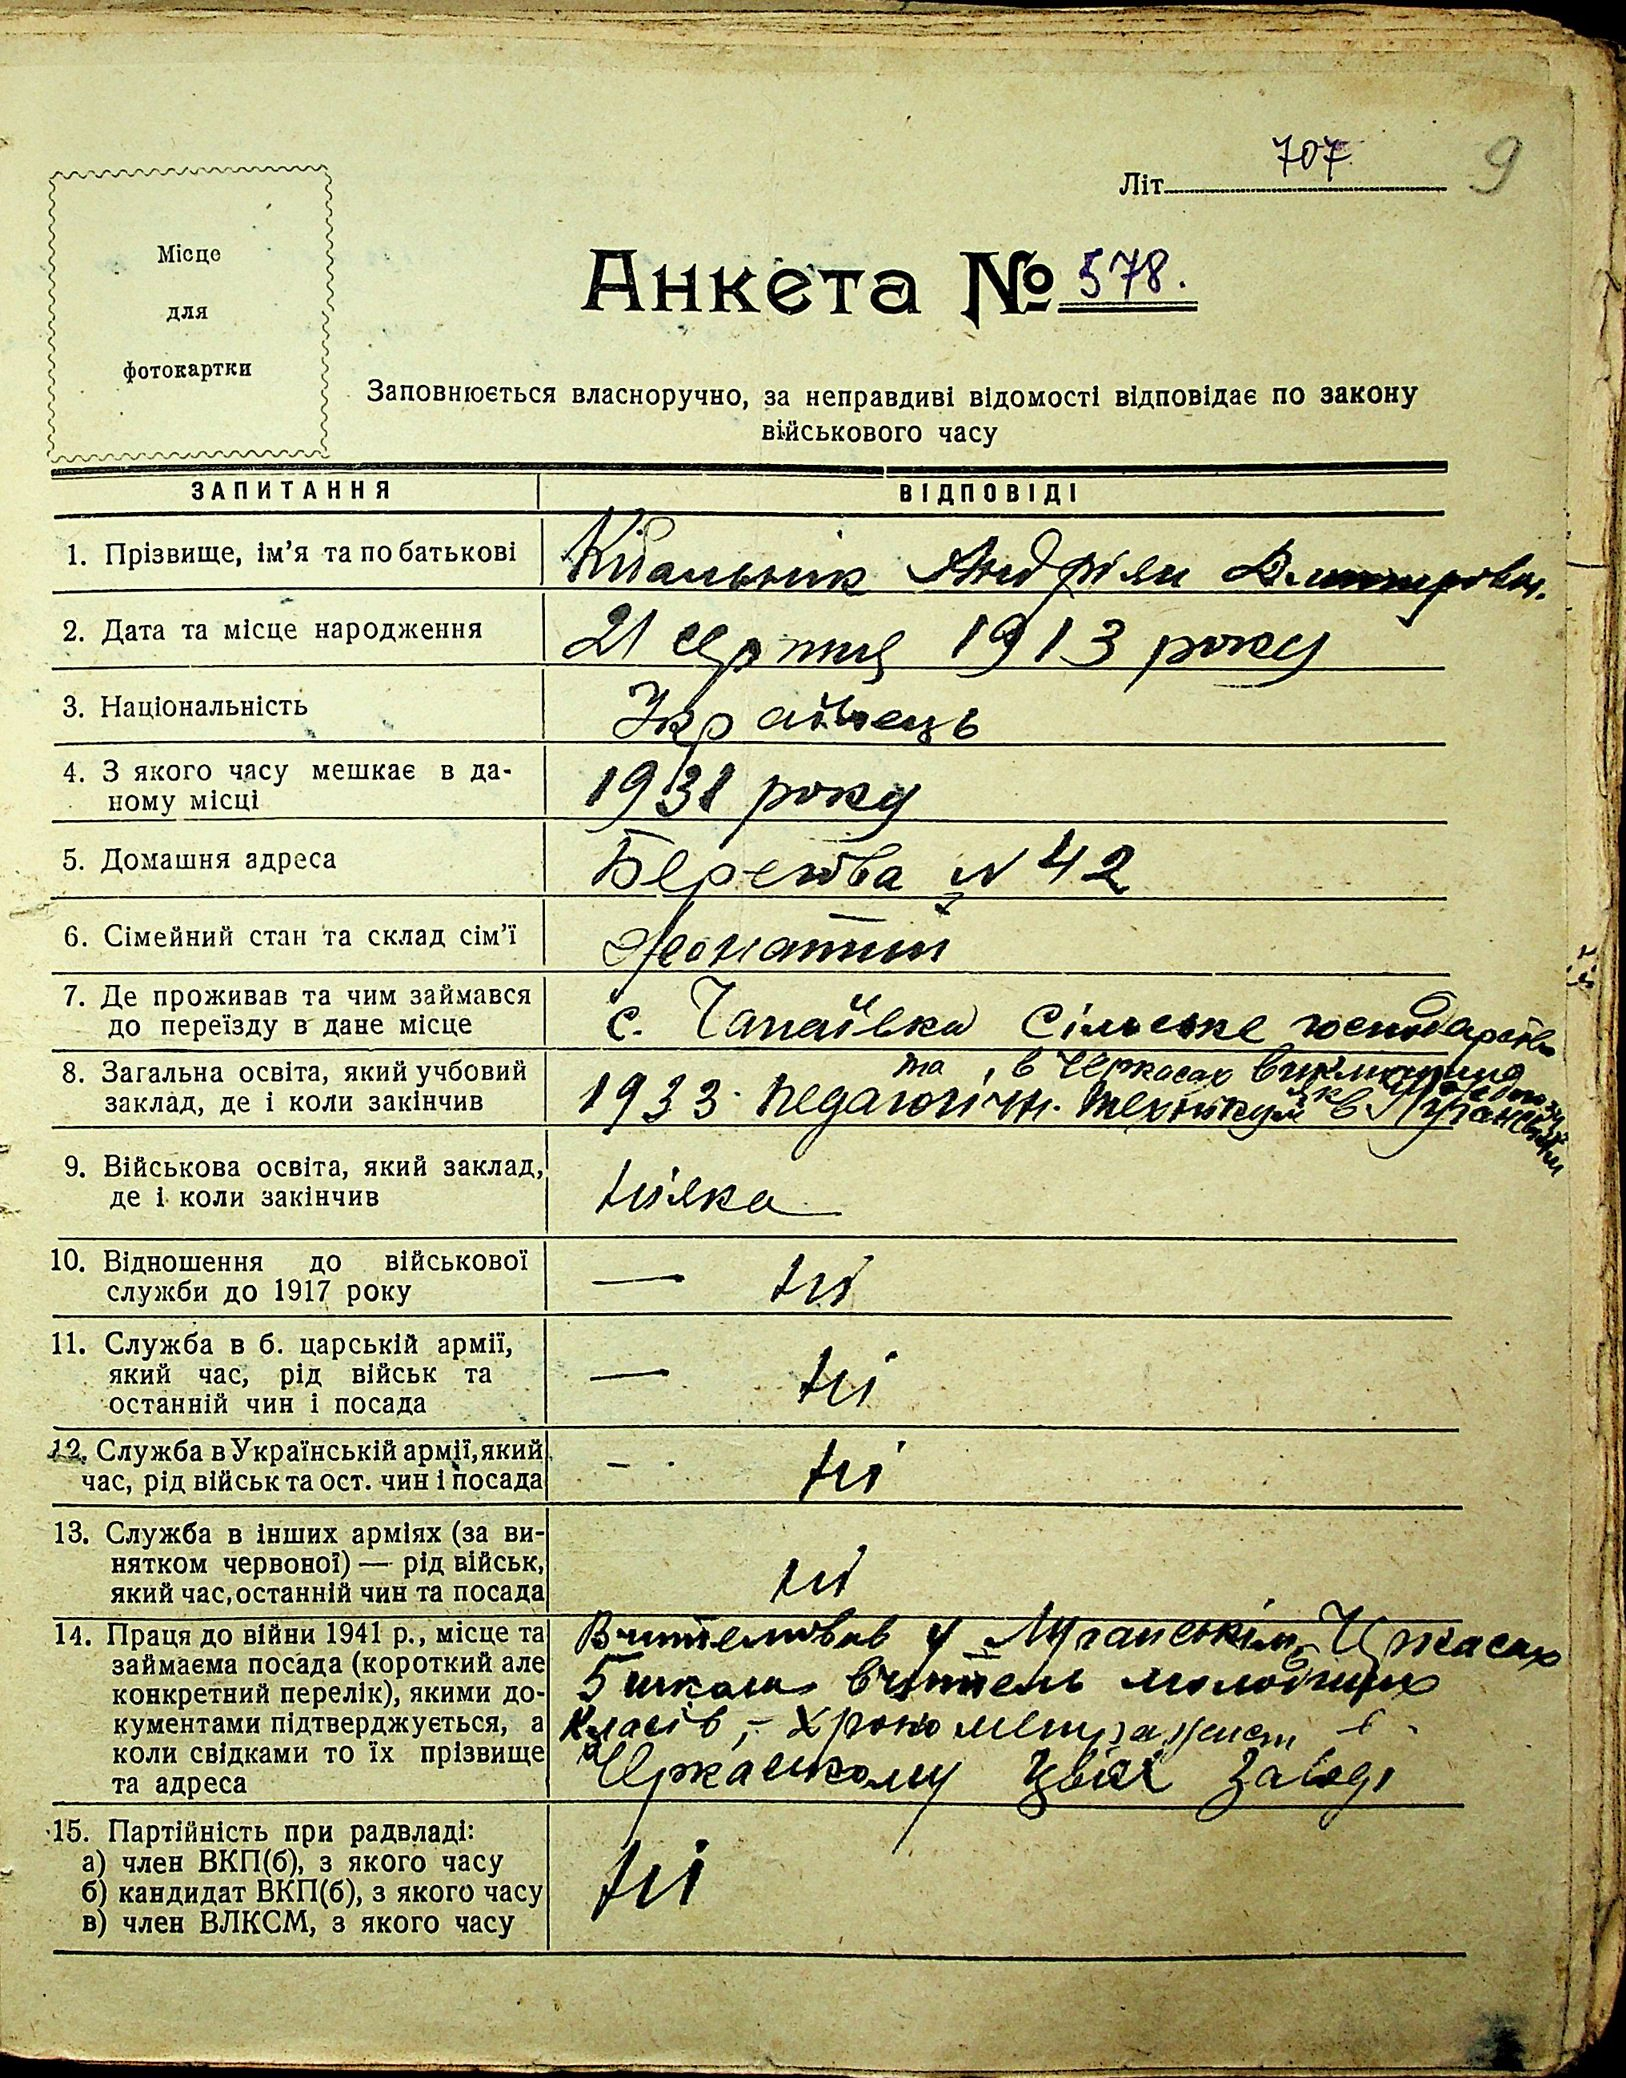 707
Літ.
9
Місце
для
фотокартки
Анкета № 578.
Заповнюється власноручно, за неправдиві відомості відповідає по закону
військового часу
ЗАПИТАННЯ ВІДПОВІДІ
1. Прізвище, ім'я та по батькові
Андріян Дмитрович.
2. Дата та місце народження
21 серпня 1913 року
3. Національність
Українець
4. З якого часу мешкає в да-
ному місці
1931 року
5. Домашня адреса
№ 42
6. Сімейний стан та склад сім'ї
Жонатий
7. Де проживав та чим займався
до переїзду в дане місце
с. Чапаївка Сільське господарство
8. Загальна освіта, який учбовий
заклад, де і коли закінчив
та, в Черкасах
1933. педагогічн. технікум в
9. Військова освіта, який заклад,
де і коли закінчив
ніяка
10. Відношення до військової
служби до 1917 року
— ні
11. Служба в б. царській армії,
який час, рід військ та
останній чин і посада
— ні
12. Служба в Українській армії, який
час, рід військ та ост. чин і посада
— ні
13. Служба в інших арміях (за ви-
нятком червоної) — рід військ,
який час, останній чин та посада
ні
14. Праця до війни 1941 р., місце та
займаєма посада (короткий але
конкретний перелік), якими до-
кументами підтверджується, а
коли свідками то їх прізвище
та адреса
Вчителював у Луганськім, Черкасах
5 школа вчитель молодших
класів, – хронометражист в
Черкаському заводі
15. Партійність при радвладі:
а) член ВКП(б), з якого часу
б) кандидат ВКП(б), з якого часу
в) член ВЛКСМ, з якого часу
ні